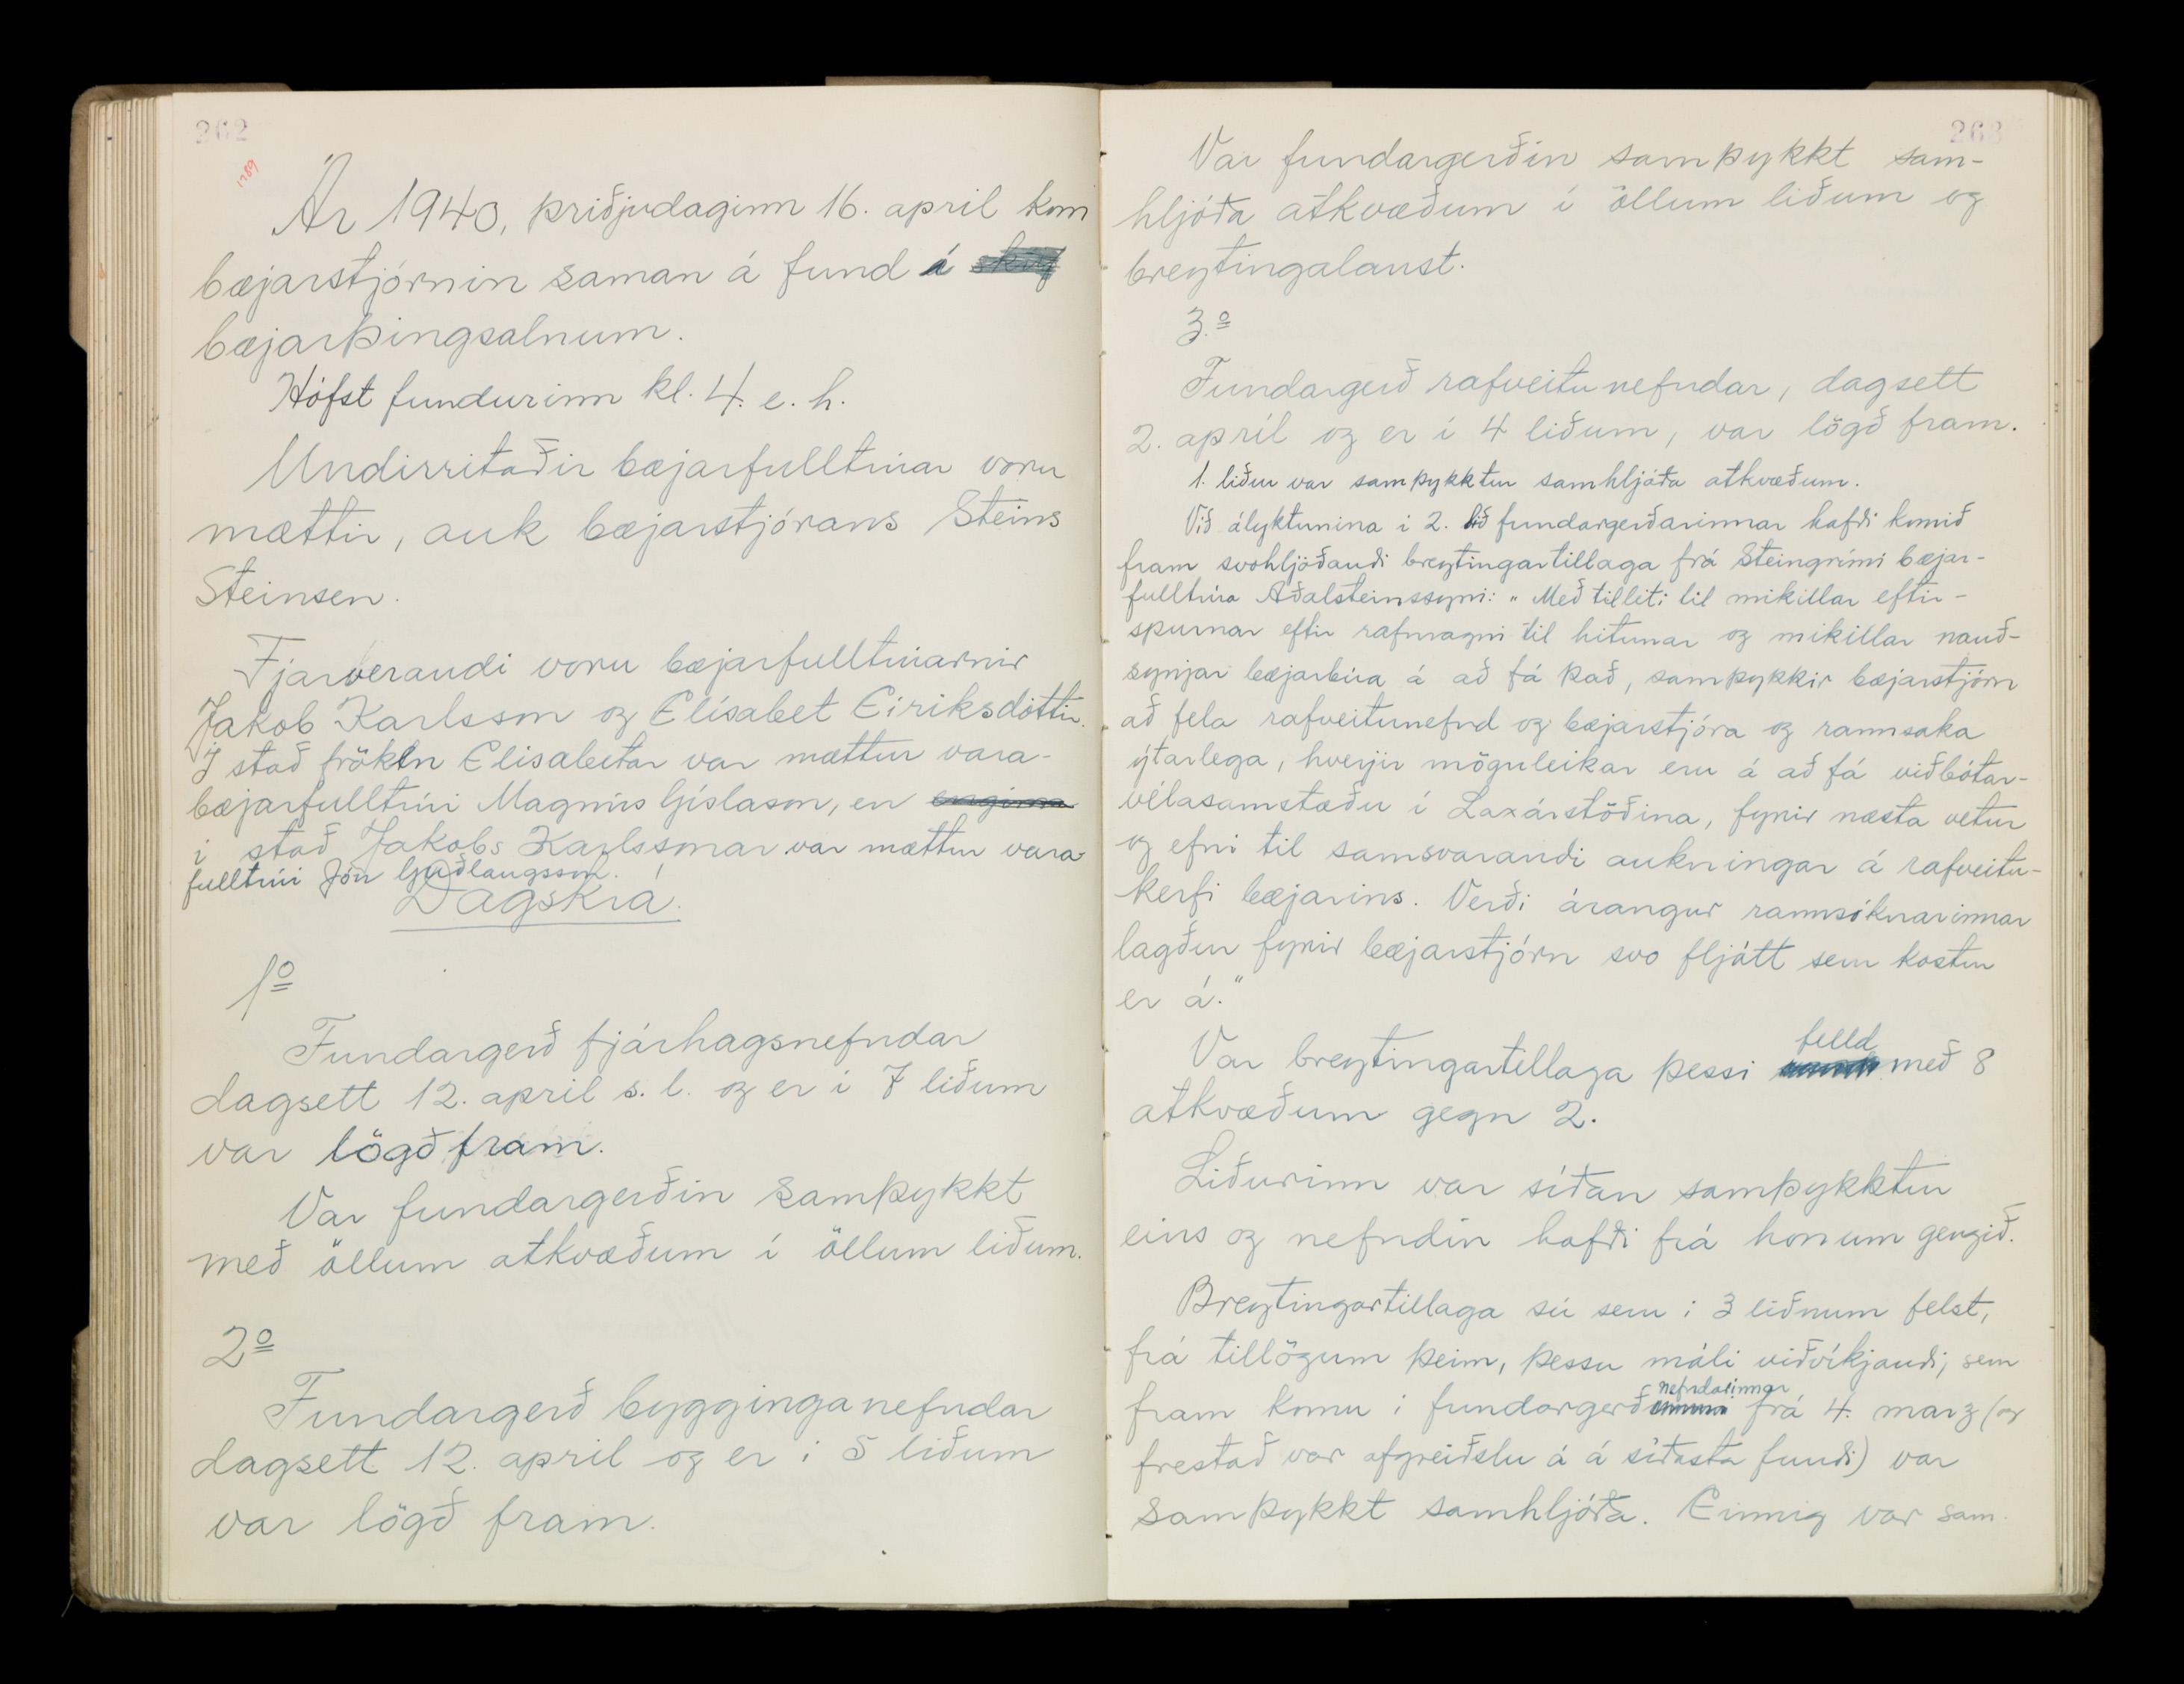 262
1789
Ár 1940, þriðjudaginn 16. april kom
bæjarstjórnin saman á fund á
bæjarþingsalnum.
Hófst fundurinn kl. 4. e. h.
Undirritaðir bæjarfulltrúar voru
mættir, auk bæjarstjórans Steins
Steinsen.
Fjarverandi voru bæjarfulltrúarnir
Jakob Karlsson og Elísabet Eiriksdóttir.
Í stað frökln Elisabetar var mættur vara-
bæjarfulltrúi Magnús Gíslason, en enginn
i stað Jakobs Karlssonar var mættur vara-
fulltrúi Jón Guðlaugsson.
Dagskrá.
1º
Fundargerð fjárhagsnefndar
dagsett 12. april s. l. og er i 7 liðum
var lögð fram.
Var fundargerðin samþykkt
með öllum atkvæðum í öllum liðum.
2º
Fundargerð bygginganefndar
dagsett 12. april og er i 5 liðum
var lögð fram.
263
Var fundargerðin samþykkt sam-
hljóða atkvæðum í öllum liðum og
breytingalaust.
3.º
Fundargerð rafveitunefndar, dagsett
2. apríl og er í 4 liðum, var lögð fram.
1. liður var samþykktur samhljóða atkvæðum.
Við ályktunina i 2. lið fundargerðarinnar hafði komið
fram svohljóðandi breytingartillaga frá Steingrími bæjar-
fulltrúa Aðalsteinssyni: „Með tilliti til mikillar eftir-
spurnar eftir rafmagni til hitunar og mikillar nauð-
synjar bæjarbúa á að fá það, samþykkir bæjarstjórn
að fela rafveitunefnd og bæjarstjóra og rannsaka
ýtarlega, hverjir möguleikar eru á að fá viðbótar-
vélasamstæðu í Laxárstöðina, fyrir næsta vetur
og efni til samsvarandi aukningar á rafveitu-
kerfi bæjarins. Verði árangur rannsóknarinnar
lagður fyrir bæjarstjórn svo fljótt sem kostur
er á."
Var breytingartillaga þessi felld með 8
atkvæðum gegn 2.
Liðurinn var síðan samþykktur
eins og nefndin hafði frá honum gengið.
Breytingartillaga sú sem i 3 liðnum felst,
frá tillögum þeim, þessu máli viðvíkjandi, sem
fram komu i fundargerð nefndarinnar frá 4. marz (og
frestað var afgreiðslu á á síðasta fundi) var
samþykkt samhljóða. Einnig var sam-